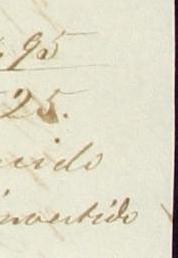 95
25.
cido
invertido